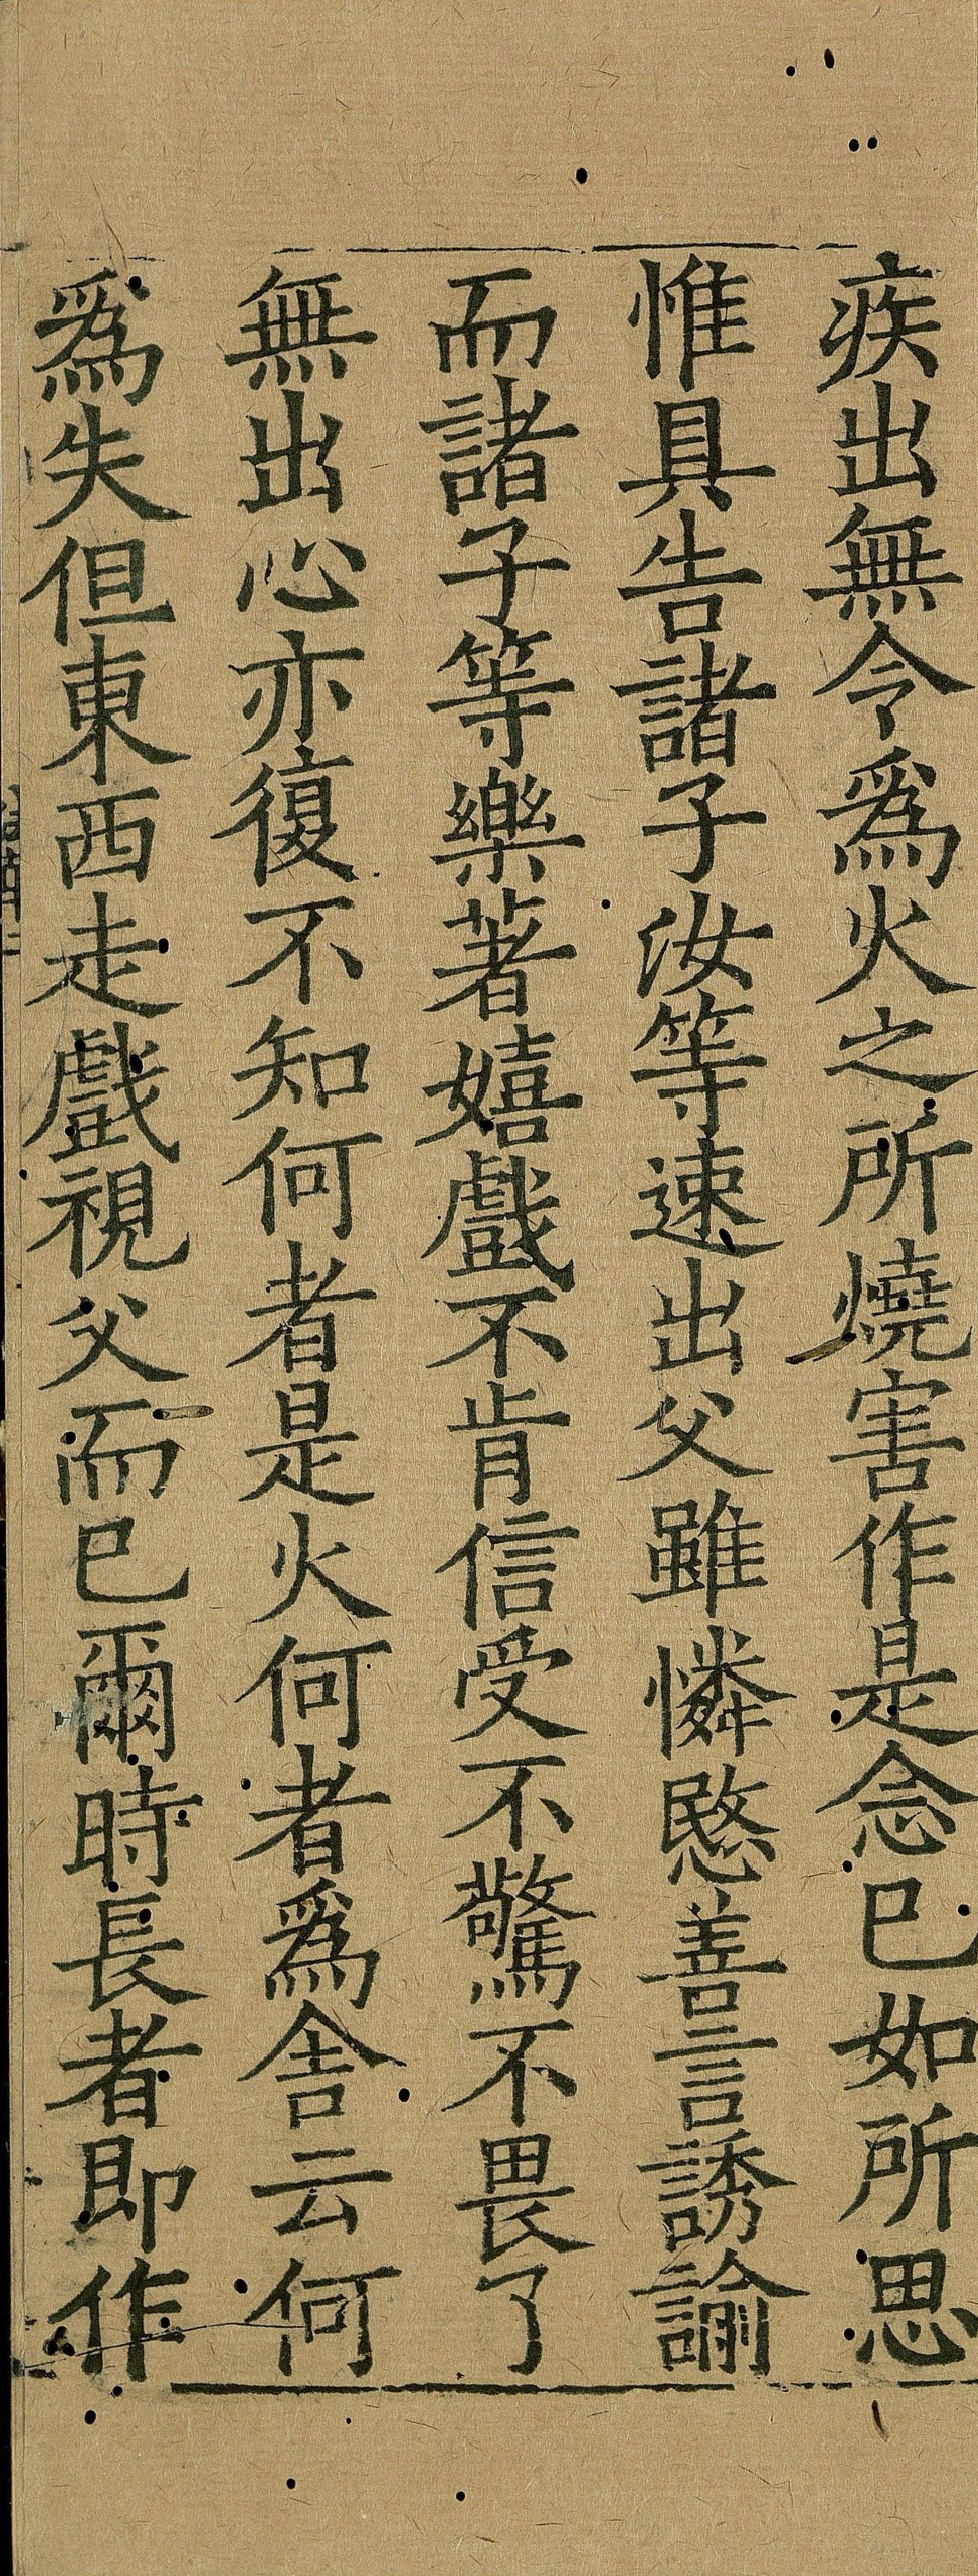 疾出無令爲火之所燒害作是念已如所思
惟具告諸子汝等速出父雖憐愍善言誘諭
而諸子等樂著嬉戲不肯信受不驚不畏了
無出心亦復不知何者是火何者爲舎云何
爲失但東西走戲視父而已爾時長者即作